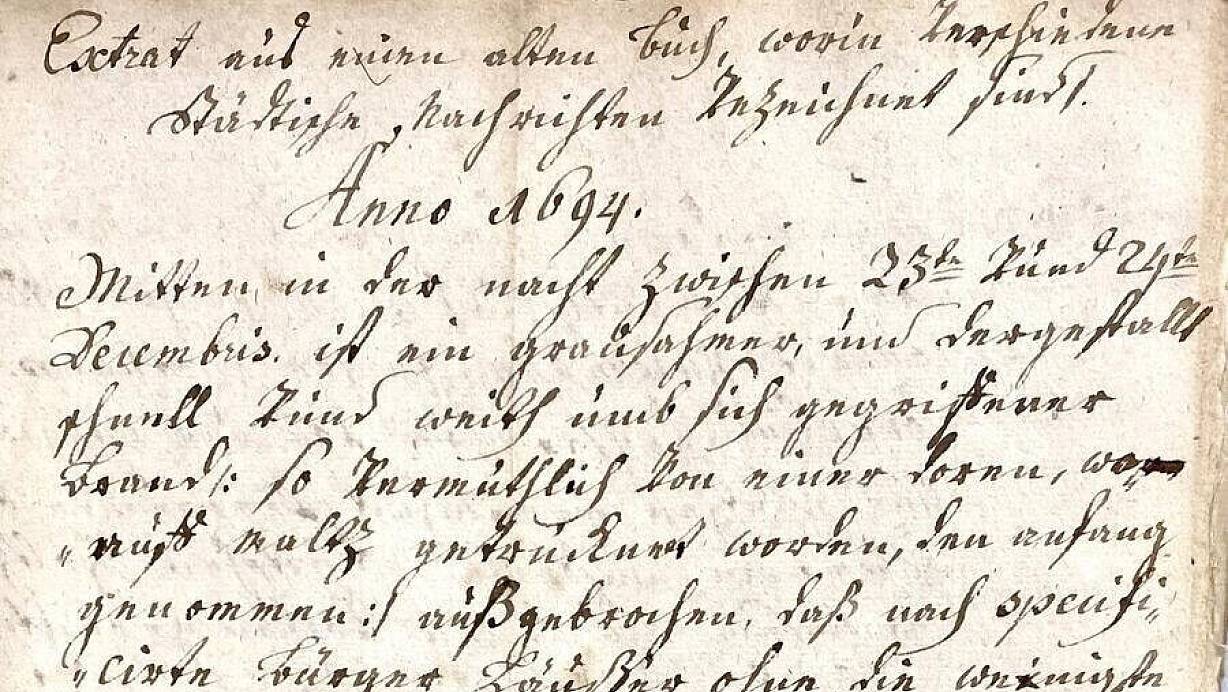 Extrat aus einen alten buch, worin verschiedene
Städtische Nachrichten verzeichnet sind.
Anno 1694.
Mitten in der nacht zwischen 23te vnd 24te
Decembris. ist ein grausahmer, und dergestallt
schnell vnd weith umb sich gegriffener
brand /: so vermuthlich von einer doren, wor„
„auff maltz getrücknet worden, den anfang
genommen :/ außgebrochen, daß nach specifi„
„cirte bürger häußer ohne die wenigste